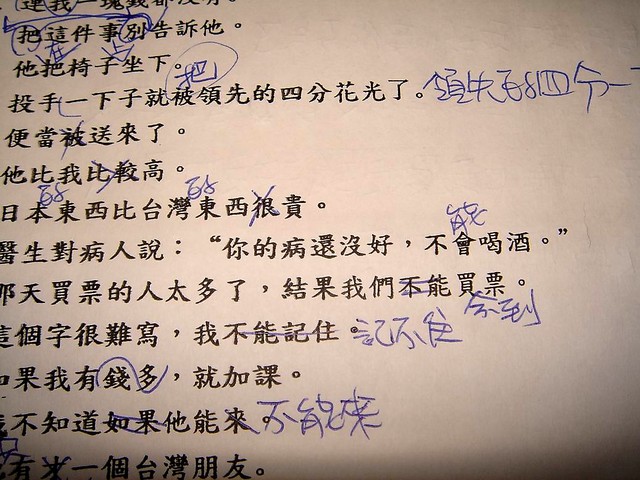 連我一塊錢都沒有。
把這件事別告訴他。
他把椅子坐下。
把
投手一下子就被領先的四分花光了。領先的四分
便當被送來了。
他比我比較高。
的 的
日本東西比台灣東西很貴。
能
醫生對病人說：“你的病還沒好，不會喝酒。”
那天買票的人太多了，結果我們不能買票。
這個字很難寫，我不能記住。記不住 不到
如果我有錢多，就加課。
我不知道如果他能來。不能來
有來一個台灣朋友。